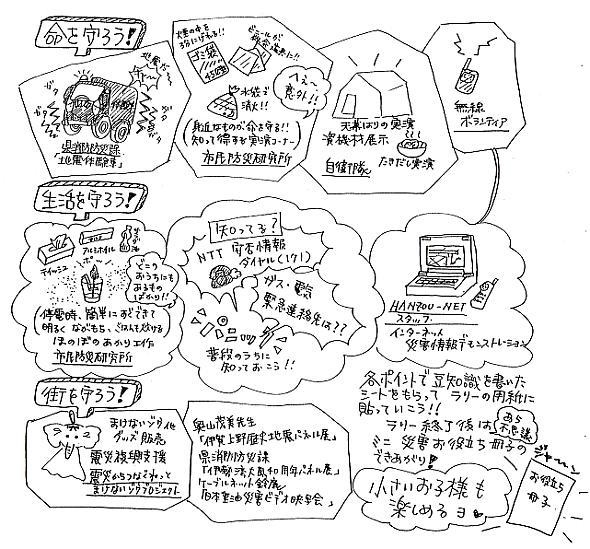 命を守ろう!
地震だー
ギャー
ガタ
ガタ
ガタ
ガタ
県消防防災課
「地震体験車」
煙の中を
ゴミ袋
ビニールが
水袋で
消火!!
へぇ〜
意外!!
身近なものが命を守る!!
知って得する実演コーナー
市民防災研究所
天幕はりの実演
資機材展示
自衛隊
たきだし実演
無線
ボランティア
生活を守ろう!
ティッシュ
アルミホイル
サラダ油
どこの
おうちにも
あるもの
ばかり!!
停電時、簡単にすぐできて
明るく なおもち、
ほのぼのあかり工作
市民防災研究所
知ってる?
NTT 安否情報
ダイヤル(171)
ガス・電気
緊急連絡先は??
パニック
普段のうちに
知っておこう!!
HANZOU-NET
スタッフ
インターネット
災害情報デモンストレーション
街を守ろう!
まけないゾウ他
グッズ販売
震災復興支援
震災からつながって
まけないゾウプロジェクト
奥山茂美先生
「伊賀上野歴史地震パネル展」
県消防防災課
「伊勢湾台風40周年パネル展」
ケーブルネット鈴鹿
「日本重油災害ビデオ映写会」
各ポイントで豆知識を書いた
シートをもらって ラリーの用紙に
貼っていこう!!
ラリー 終了後は
あら
不思議
ミニ 災害お役立ち冊子の
できあがり!
小さいお子様も
楽しめるヨ
ジャーン
お役立ち
冊子